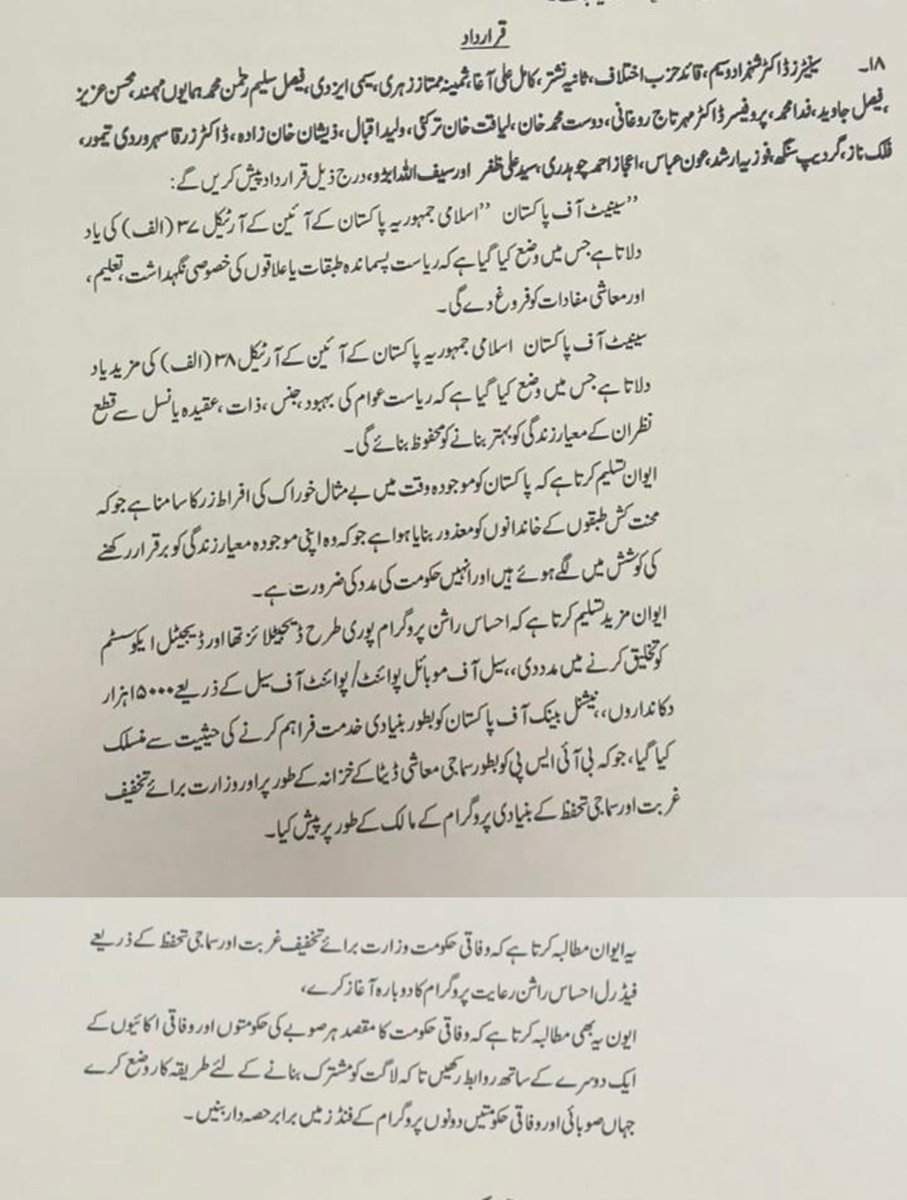 قرارداد
۱۸۔ سینیٹرز ڈاکٹر شہزاد وسیم، قائد حزب اختلاف، ثانیہ نشتر، کامل علی آغا، ثمینہ ممتاز زہری، سیمی ایزدی، فیصل سلیم رحمٰن، محمد ہمایوں مہمند، محسن عزیز
، فیصل جاوید، فدا محمد، پروفیسر ڈاکٹر مہر تاج روغانی، دوست محمد خان، لیاقت خان ترکئی، ولید اقبال، ذیشان خان زادہ، ڈاکٹر زرقا سہروردی تیمور،
فلک ناز، گردیپ سنگھ، فوزیہ ارشد، عون عباس، اعجاز احمد چوہدری، سید علی ظفر اور سیف اللہ ابڑو، درج ذیل قرارداد پیش کریں گے:
”سینیٹ آف پاکستان ”اسلامی جمہوریہ پاکستان کے آئین کے آرٹیکل ۳۷ (الف) کی یاد
دلاتا ہے جس میں وضع کیا گیا ہے کہ ریاست پسماندہ طبقات یا علاقوں کی خصوصی نگہداشت، تعلیم،
اور معاشی مفادات کو فروغ دے گی۔
سینیٹ آف پاکستان اسلامی جمہوریہ پاکستان کے آئین کے آرٹیکل ۳۸ (الف) کی مزید یاد
دلاتا ہے جس میں وضع کیا گیا ہے کہ ریاست عوام کی بہبود، جنس، ذات، عقیدہ یا نسل سے قطع
نظر ان کے معیار زندگی کو بہتر بنانے کو محفوظ بنائے گی۔
ایوان تسلیم کرتا ہے کہ پاکستان کو موجودہ وقت میں بے مثال خوراک کی افراط زر کا سامنا ہے جو کہ
محنت کش طبقوں کے خاندانوں کو معذور بنایا ہوا ہے جو کہ وہ اپنی موجودہ معیار زندگی کو برقرار رکھنے
کی کوشش میں لگے ہوئے ہیں اور انہیں حکومت کی مدد کی ضرورت ہے۔
ایوان مزید تسلیم کرتا ہے کہ احساس راشن پروگرام پوری طرح ڈیجیٹلائز تھا اور ڈیجیٹل ایکوسسٹم
کو تخلیق کرنے میں مدد دی،، سیل آف موبائل پوائنٹ/ پوائنٹ آف سیل کے ذریعے ۱۵۰۰۰ ہزار
دکانداروں،، نیشنل بینک آف پاکستان کو بطور بنیادی خدمت فراہم کرنے کی حیثیت سے منسلک
کیا گیا، جو کہ بی آئی ایس پی کو بطور سماجی معاشی ڈیٹا کے خزانہ کے طور پر اور وزارت برائے تخفیف
غربت اور سماجی تحفظ کے بنیادی پروگرام کے مالک کے طور پر پیش کیا۔
یہ ایوان مطالبہ کرتا ہے کہ وفاقی حکومت وزارت برائے تخفیف غربت اور سماجی تحفظ کے ذریعے
فیڈرل احساس راشن رعایت پروگرام کا دوبارہ آغاز کرے،
ایون یہ بھی مطالبہ کرتا ہے کہ وفاقی حکومت کا مقصد ہر صوبے کی حکومتوں اور وفاقی اکائیوں کے
ایک دوسرے کے ساتھ روابط رکھیں تاکہ لاگت کو مشترک بنانے کے لئے طریقہ کار وضع کرے
جہاں صوبائی اور وفاقی حکومتیں دونوں پروگرام کے فنڈز میں برابر حصہ دار بنیں۔